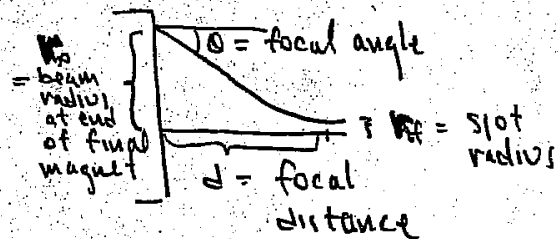 θ = focal angle
r₀
= beam
radius
at end
of final
magnet
= slot
radius
d = focal
distance